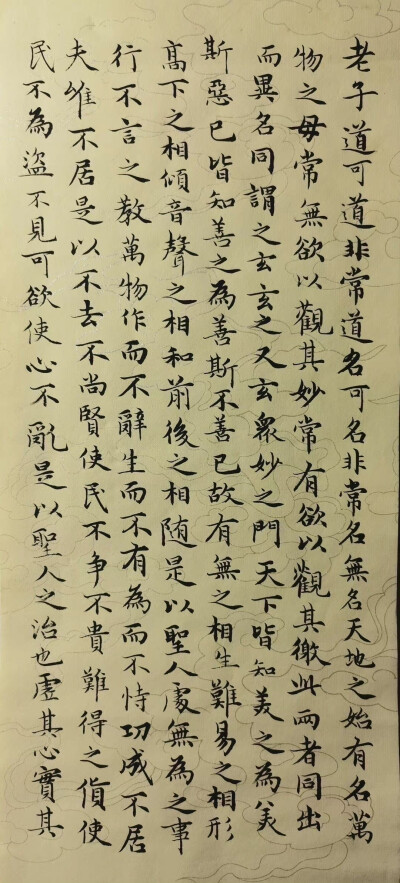 老子道可道非常道名可名非常名無名天地之始有名萬
物之母常無欲以觀其妙常有欲以觀其徼此兩者同出
而異名同謂之玄玄之又玄眾妙之門天下皆知美之為美
斯惡已皆知善之為善斯不善已故有無之相生難易之相形
高下之相傾音聲之相和前後之相隨是以聖人處無為之事
行不言之教萬物作而不辭生而不有為而不恃功成不居
夫惟不居是以不去不尚賢使民不爭不貴難得之貨使
民不為盜不見可欲使心不亂是以聖人之治也虛其心實其